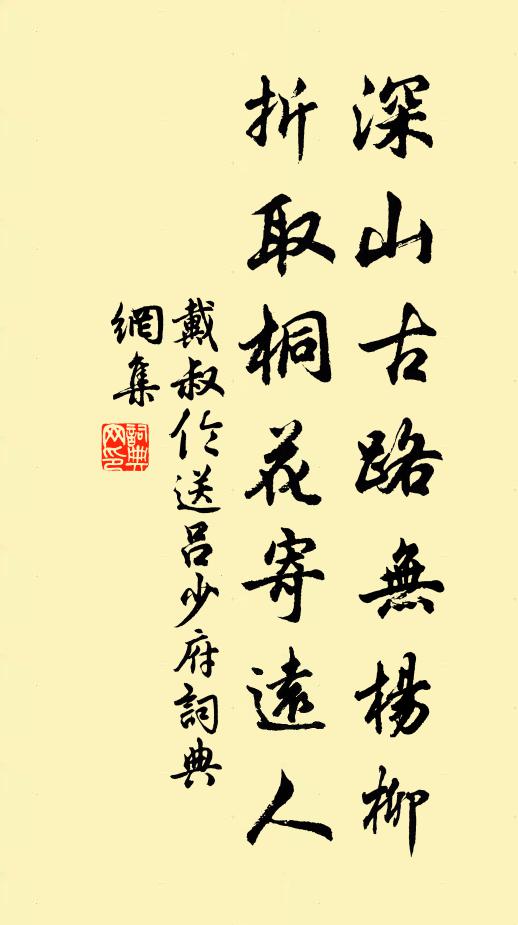 深山古路無楊柳
折取桐花寄遠人
戴叔伦送呂少府詞典
網集
詞典
网印